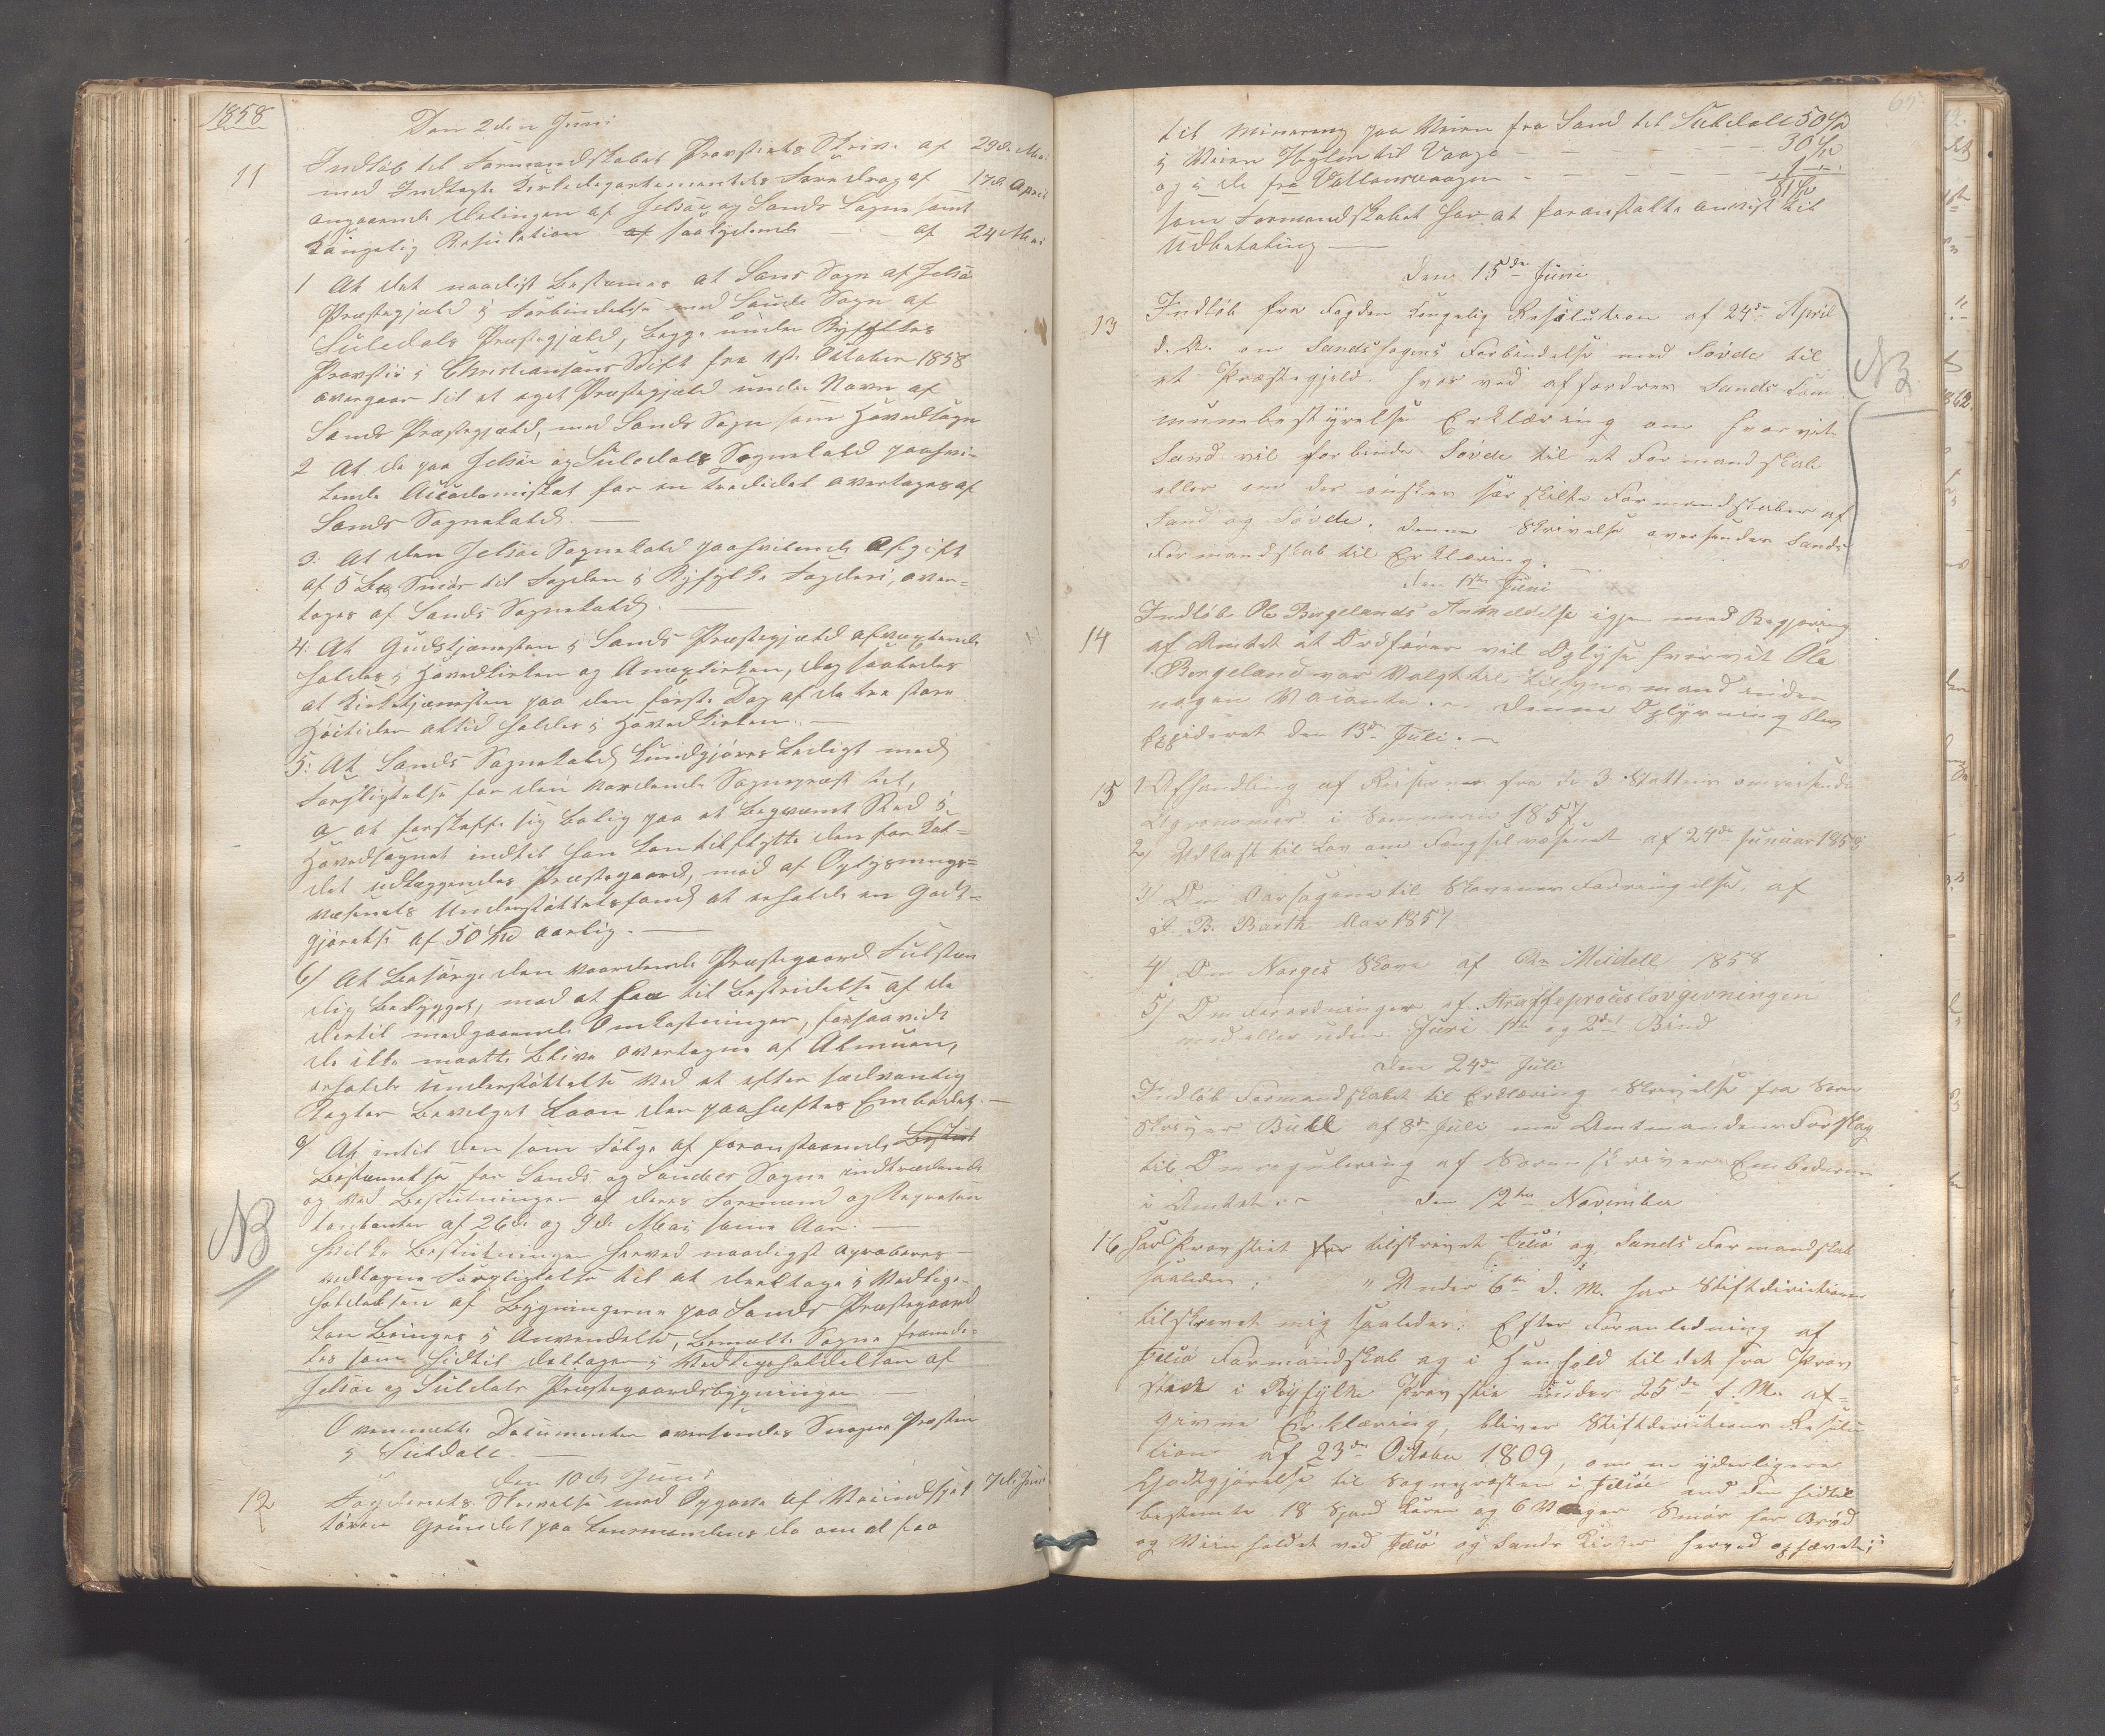 1858
Den 2den Juni
11 Indløb til Formandskabet Provstiets Skriv. af 29de Mai
med Indtagte Kirkedepartementets Foredrag af 17de April
angaaende Delingen af Jelsøe og Sands Sogne samt
Kongelig Resulution af saalydende — af 24 Mai
1 At det naadigst bestemmes at Sans Sogn af Jelsøe
Præstegjæld i Forbindelse med Saude Sogn af
Suledals Præstegjæld, begge under Ryfylkes
Provsti i Christiansans Stift fra 1ste Oktober 1858
overgaar til et eget Præstegjæld under Navn af
Sands Præstegjæld, med Sands Sogn som Hovedsogn
2 At de paa Jelsøe og Suledals Sognekald paahvi-
lende Accademiskat for en Trediedel overtages af
Sands Sognekald. —
3. At den Jelsøe Sognekald paahvilende Afgift
af 5 Smør til Fogden i Ryfylke Fogderi, over-
tages af Sands Sognekald. —
4. At Gudstjenesten i Sands Præstegjæld afvexlende
holdes i Hovedkirken og Anexkirken, dog saaledes
at Kirketjenesten paa den første Dag af de tre store
Høitider altid holdes i Hovedkirken. —
5. At Sands Sognekald kundgjøres Ledigt med
Forpligtelse for den vordende Sognepræst til,
a at forskaffe sig Bolig paa et beqvemt Sted i
Hovedsognet indtil han kan tilflytte den for Kal-
det udlæggendes Præstegaard, mod af Oplysnings-
væsenets Understøttelsesfond at erholde en Godt-
gjørelse af 50 Spd aarlig. —
6) At besørge den vordende Præstegaard Fulstæn
dig bebygget, mod at faa til Bestridelse af de
dertil medgaaende Omkostninger, forsaavidt
de ikke maatte blive overtagne af Almuen,
erholde Understøttelse ved et efter sædvanlig
Regler bevilget Laan der paaheftes Embedet. —
At intil den som Følge af foranstaaende
Bestemmelse for Sands og Saudes Sogne indtrædende
og ved Beslutninger af deres Formænd og Repræsen
tanter af 26de og 9de Mai samme Aar. —
hvilke Beslutninger herved naadigst aproberes
vedtagne Forpligtelse til at deeltage i Vedlige-
holdelsen af Bygningerne paa Sands Præstegaard
kan bringes i Anvendelse, bemælte Sogne fremde-
les som hidtil deltager i Vedligeholdelsen af
Jelsøe og Suldals Præstegaardsbygninger —
NB
Ovenmælte Documenter oversendes Sogne Præsten
i Suldall. —
Den 10de Juni
12 Fogderiets Skrivelse med Opgave af Veiindspek 7de Juni
tøren Grundet paa Lensmandens do om at faa
65
til Minering paa Veien fra Sand til Suldall 50
i Veien Hylen til Vaage — — — 30
og i do fra Vallansvaagen — — — 1
81
som Formandskabet har at foranstalte anvist til
Udbetaling —
Den 15de Juni
13 Indløb fra Fogden Kongelig Resolution af 24de April
d. A. om Sandssogns Forbindelse med Søvde til
et Præstegjeld. hvor ved affordres Sands Kom
munebestyrelse Erklæring om hvorvit
Sand vil forbinde Søvde til et Formandskab
eller om der ønskes særskilte Formandskaber af
Sand og Søvde. Denne Skrivelse oversendes Sands
Formandskab til Erklæring. —
NB
Den Juni
14 Indløb Ole Bergelands Anmeldelse igjen med Begjæring
af Amtet at Ordfører vil Oplyse hvorvit Ole
Bergeland var Valgt til Tilsynsmand uden
nogen Vacante. — Denne Oplysning blev
Expideret den 13de Juli. —
15 1 Afhandling af Reiserner fra de 3 Stattens omreisende
Agronomer i Sommeren 1857
2) Udkast til Lov om Fængselvæsenet af 24de Januar 1858
3) Om Aarsagene til Skovenes Forringelse. af
B. Barth Aar 1857
4) Om Norges Skove af Meidell 1858
5) Om Forordninger af Straffeproceslovgivningen
med eller uden Juri 1ste og 2det Bind
Den 24de Juli
Indløb Formandskabet til Erklæring Skrivelse fra Soren
Skriver Bull af 8de Juli med Amtmandens Forslag
til Omregulering af Sorenskriver Embederne
i Amtet. — Den 12te November
16 Har Provstiet for tilskrevet Jelsø og Sands Formandskab
saaledes: "Under 6te d. M. har Stiftdirectionen
tilskrevet mig saaledes: Efter Foranledning af
Jelsø Formandskab og i Henhold til det fra Prov
sten i Ryfylke Provstie under 25de f. M. af-
givne Erklæring, bliver Stiftderectionens Resolu
tion af 23de October 1809, om en yderligere
Godtgjørelse til Sognepræsten i Jelsøe end den hidtil
bestemte 18 Spand Koren og 6 Vaager Smør for Brød
og Viin holdet ved Jelsø og Sands Kirker herved ophævet;